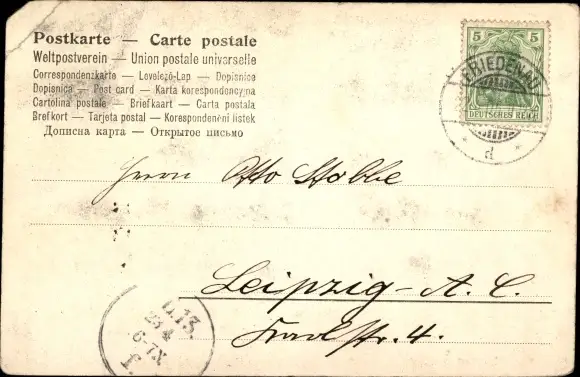 Postkarte — Carte postale
Weltpostverein — Union postale universelle
Correspondenzkarte — Levelező-Lap — Dopisnice
Dopisnica — Post card — Karta korespondencyjna
Cartolina postale — Briefkaart — Carta postala
Brefkort — Tarjeta postal — Korespondenční lístek
Дописна карта — Открытое письмо
5 5
FRIEDENAU
DEUTSCHES REICH
d
Herrn Otto Stobbe
Leipzig - A. C.
str. 4.
L.13.
4
6-7N.
f.